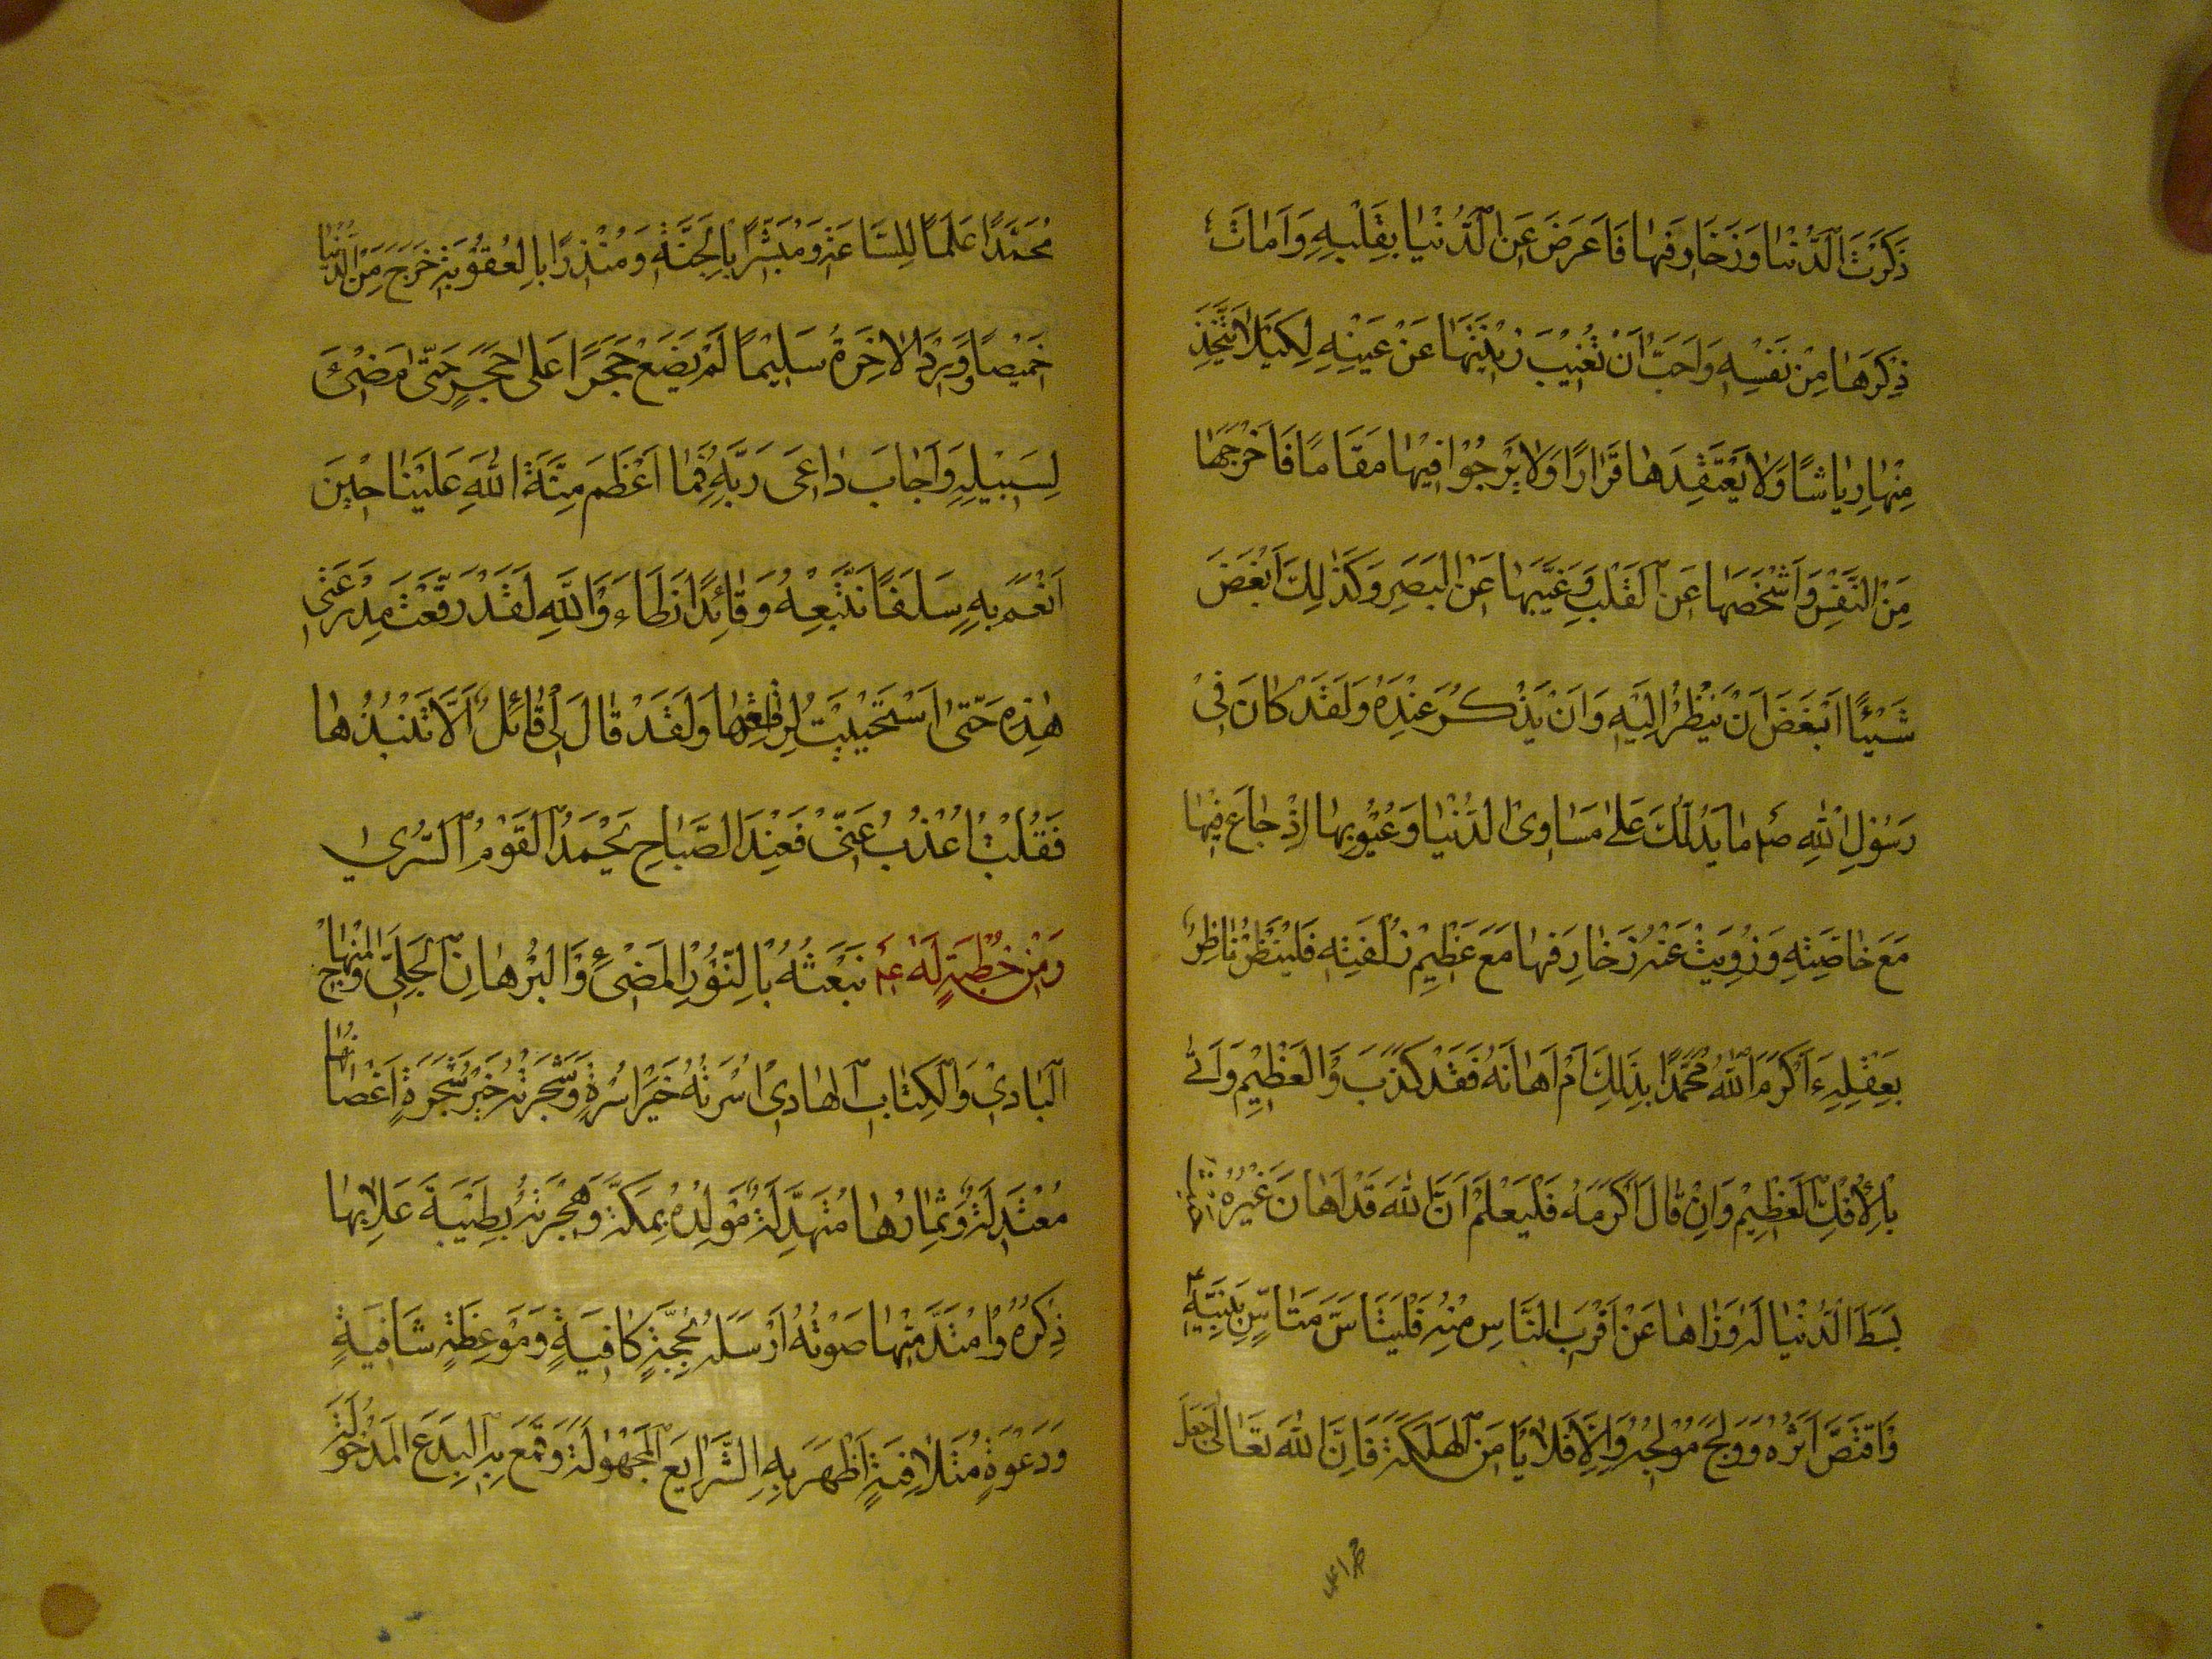 ذَكَرْتَ الدُّنْيَا وَزَخَارِفَهَا فَاَعْرَضَ عَنِ الدُّنْيَا بِقَلْبِهِ وَاَمَاتَ
ذِكْرَهَا مِنْ نَفْسِهِ وَاَحَبَّ اَنْ تَغِيْبَ زِيْنَتُهَا عَنْ عَيْنِهِ لِكَيْلَا يَتَّخِذَ
مِنْهَا رِيَاشًا وَلَا يَعْتَقِدَهَا قَرَارًا وَلَا يَرْجُوْا فِيْهَا مَقَامًا فَاَخْرَجَهَا
مِنَ النَّفْسِ وَاَشْخَصَهَا عَنِ الْقَلْبِ وَغَيَّبَهَا عَنِ الْبَصَرِ وَكَذٰلِكَ اَبْغَضَ
شَيْئًا اَبْغَضَ اَنْ يَنْظُرَ اِلَيْهِ وَاَنْ يُذْكَرَ عِنْدَهُ وَلَقَدْ كَانَ فِيْ
رَسُوْلِ اللّٰهِ صلم مَا يَدُلُّكَ عَلٰى مَسَاوِى الدُّنْيَا وَعُيُوْبِهَا اِذْ جَاعَ فِيْهَا
مَعَ خَاصَّتِهِ وَزُوِيَتْ عَنْهُ زَخَارِفُهَا مَعَ عَظِيْمِ زُلْفَتِهِ فَلْيَنْظُرْ نَاظِرٌ
بِعَقْلِهِ ءَاَكْرَمَ اللّٰهُ مُحَمَّدًا بِذٰلِكَ اَمْ اَهَانَهُ فَقَدْ كَذَبَ وَالْعَظِيْمِ وَاَتٰى
بِالْاِفْكِ الْعَظِيْمِ وَاِنْ قَالَ اَكْرَمَهُ فَلْيَعْلَمْ اَنَّ اللّٰهَ قَدْ اَهَانَ غَيْرَهُ
بَسَطَ الدُّنْيَا لَهُ وَزَوَاهَا عَنْ اَقْرَبِ النَّاسِ مِنْهُ فَلْيَتَاَسَّ مُتَاَسٍّ بِنَبِيِّهِ
وَاقْتَصَّ اَثَرَهُ وَوَلَجَ مَوْلِجَهُ وَاِلَّا فَلَا يَاْمَنِ الْهَلَكَةَ فَاِنَّ اللّٰهَ تَعَالٰى جَعَلَ
مُحَمَّدًا عَلَمًا لِلسَّاعَةِ وَمُبَشِّرًا بِالْجَنَّةِ وَمُنْذِرًا بِالْعُقُوْبَةِ خَرَجَ مِنَ الدُّنْيَا
خَمِيْصًا وَوَرَدَ الْاٰخِرَةَ سَلِيْمًا لَمْ يَضَعْ حَجَرًا عَلٰى حَجَرٍ حَتّٰى مَضٰى
لِسَبِيْلِهِ وَاَجَابَ دَاعِىَ رَبِّهِ فَمَا اَعْظَمَ مِنَّةَ اللّٰهِ عَلَيْنَا حِيْنَ
اَنْعَمَ بِهِ سَلَفًا نَتَّبِعُهُ وَقَائِدًا نَطَاءُ وَاللّٰهِ لَقَدْ رَقَّعْتُ مِدْرَعَتِى
هٰذِهِ حَتّٰى اسْتَحْيَيْتُ لِرَاقِعِهَا وَلَقَدْ قَالَ لِى قَائِلٌ اَلَا تَنْبِذُهَا
فَقُلْتُ اعْزُبْ عَنِّىْ فَعِنْدَ الصَّبَاحِ يَحْمَدُ الْقَوْمُ السُّرٰى
وَمِنْ خُطْبَةٍ لَهُ عم بَعَثَهُ بِالنُّوْرِ الْمُضِىْءِ وَالْبُرْهَانِ الْجَلِىِّ وَالْمِنْهَاجِ
الْبَادِىْ وَالْكِتَابِ الْهَادِىْ اُسْرَتُهُ خَيْرُ اُسْرَةٍ وَشَجَرَتُهُ خَيْرُ شَجَرَةٍ اَغْصَانُهَا
مُعْتَدِلَةٌ وَثِمَارُهَا مُتَهَدِّلَةٌ مَوْلِدُهُ بِمَكَّةَ وَهِجْرَتُهُ بِطَيْبَةَ عَلَا بِهَا
ذِكْرُهُ وَامْتَدَّ مِنْهَا صَوْتُهُ اَرْسَلَهُ بِحُجَّةٍ كَافِيَةٍ وَمَوْعِظَةٍ شَافِيَةٍ
وَدَعْوَةٍ مُتَلَافِيَةٍ اَظْهَرَ بِهِ الشَّرَايِعَ الْمَجْهُوْلَةَ وَقَمَعَ بِهِ الْبِدَعَ الْمَدْخُوْلَةَ